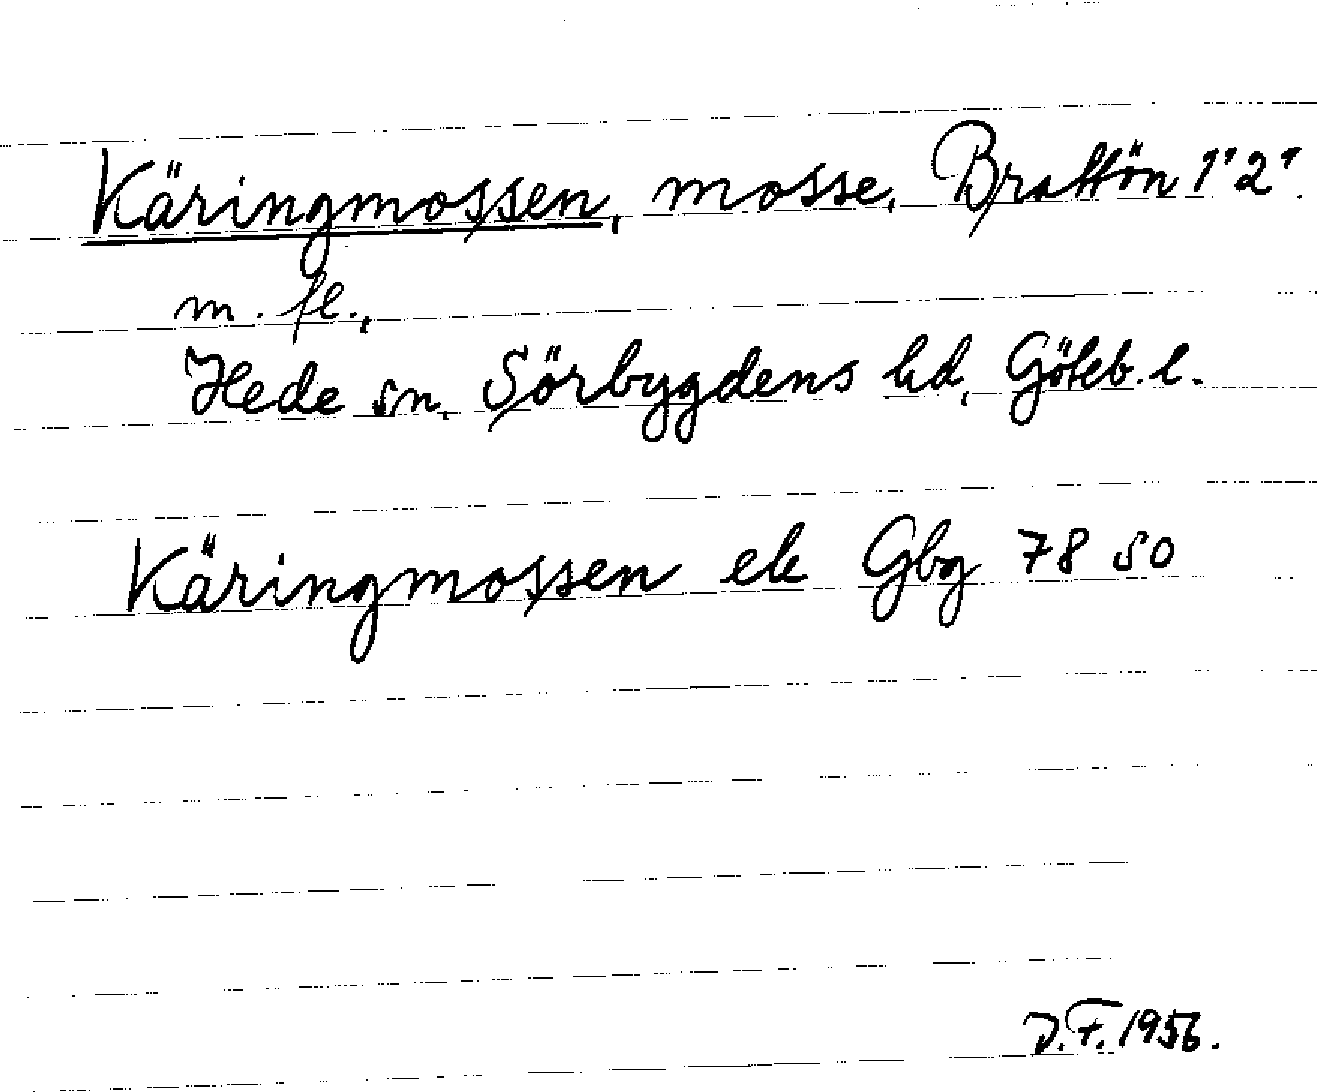 Käringmossen, mosse, Brattön 1"2".
m. fl.,
Hede sn, Sörbygdens hd, Göteb. l.
Käringmossen ek Gbg 78 SO
D.F. 1956.